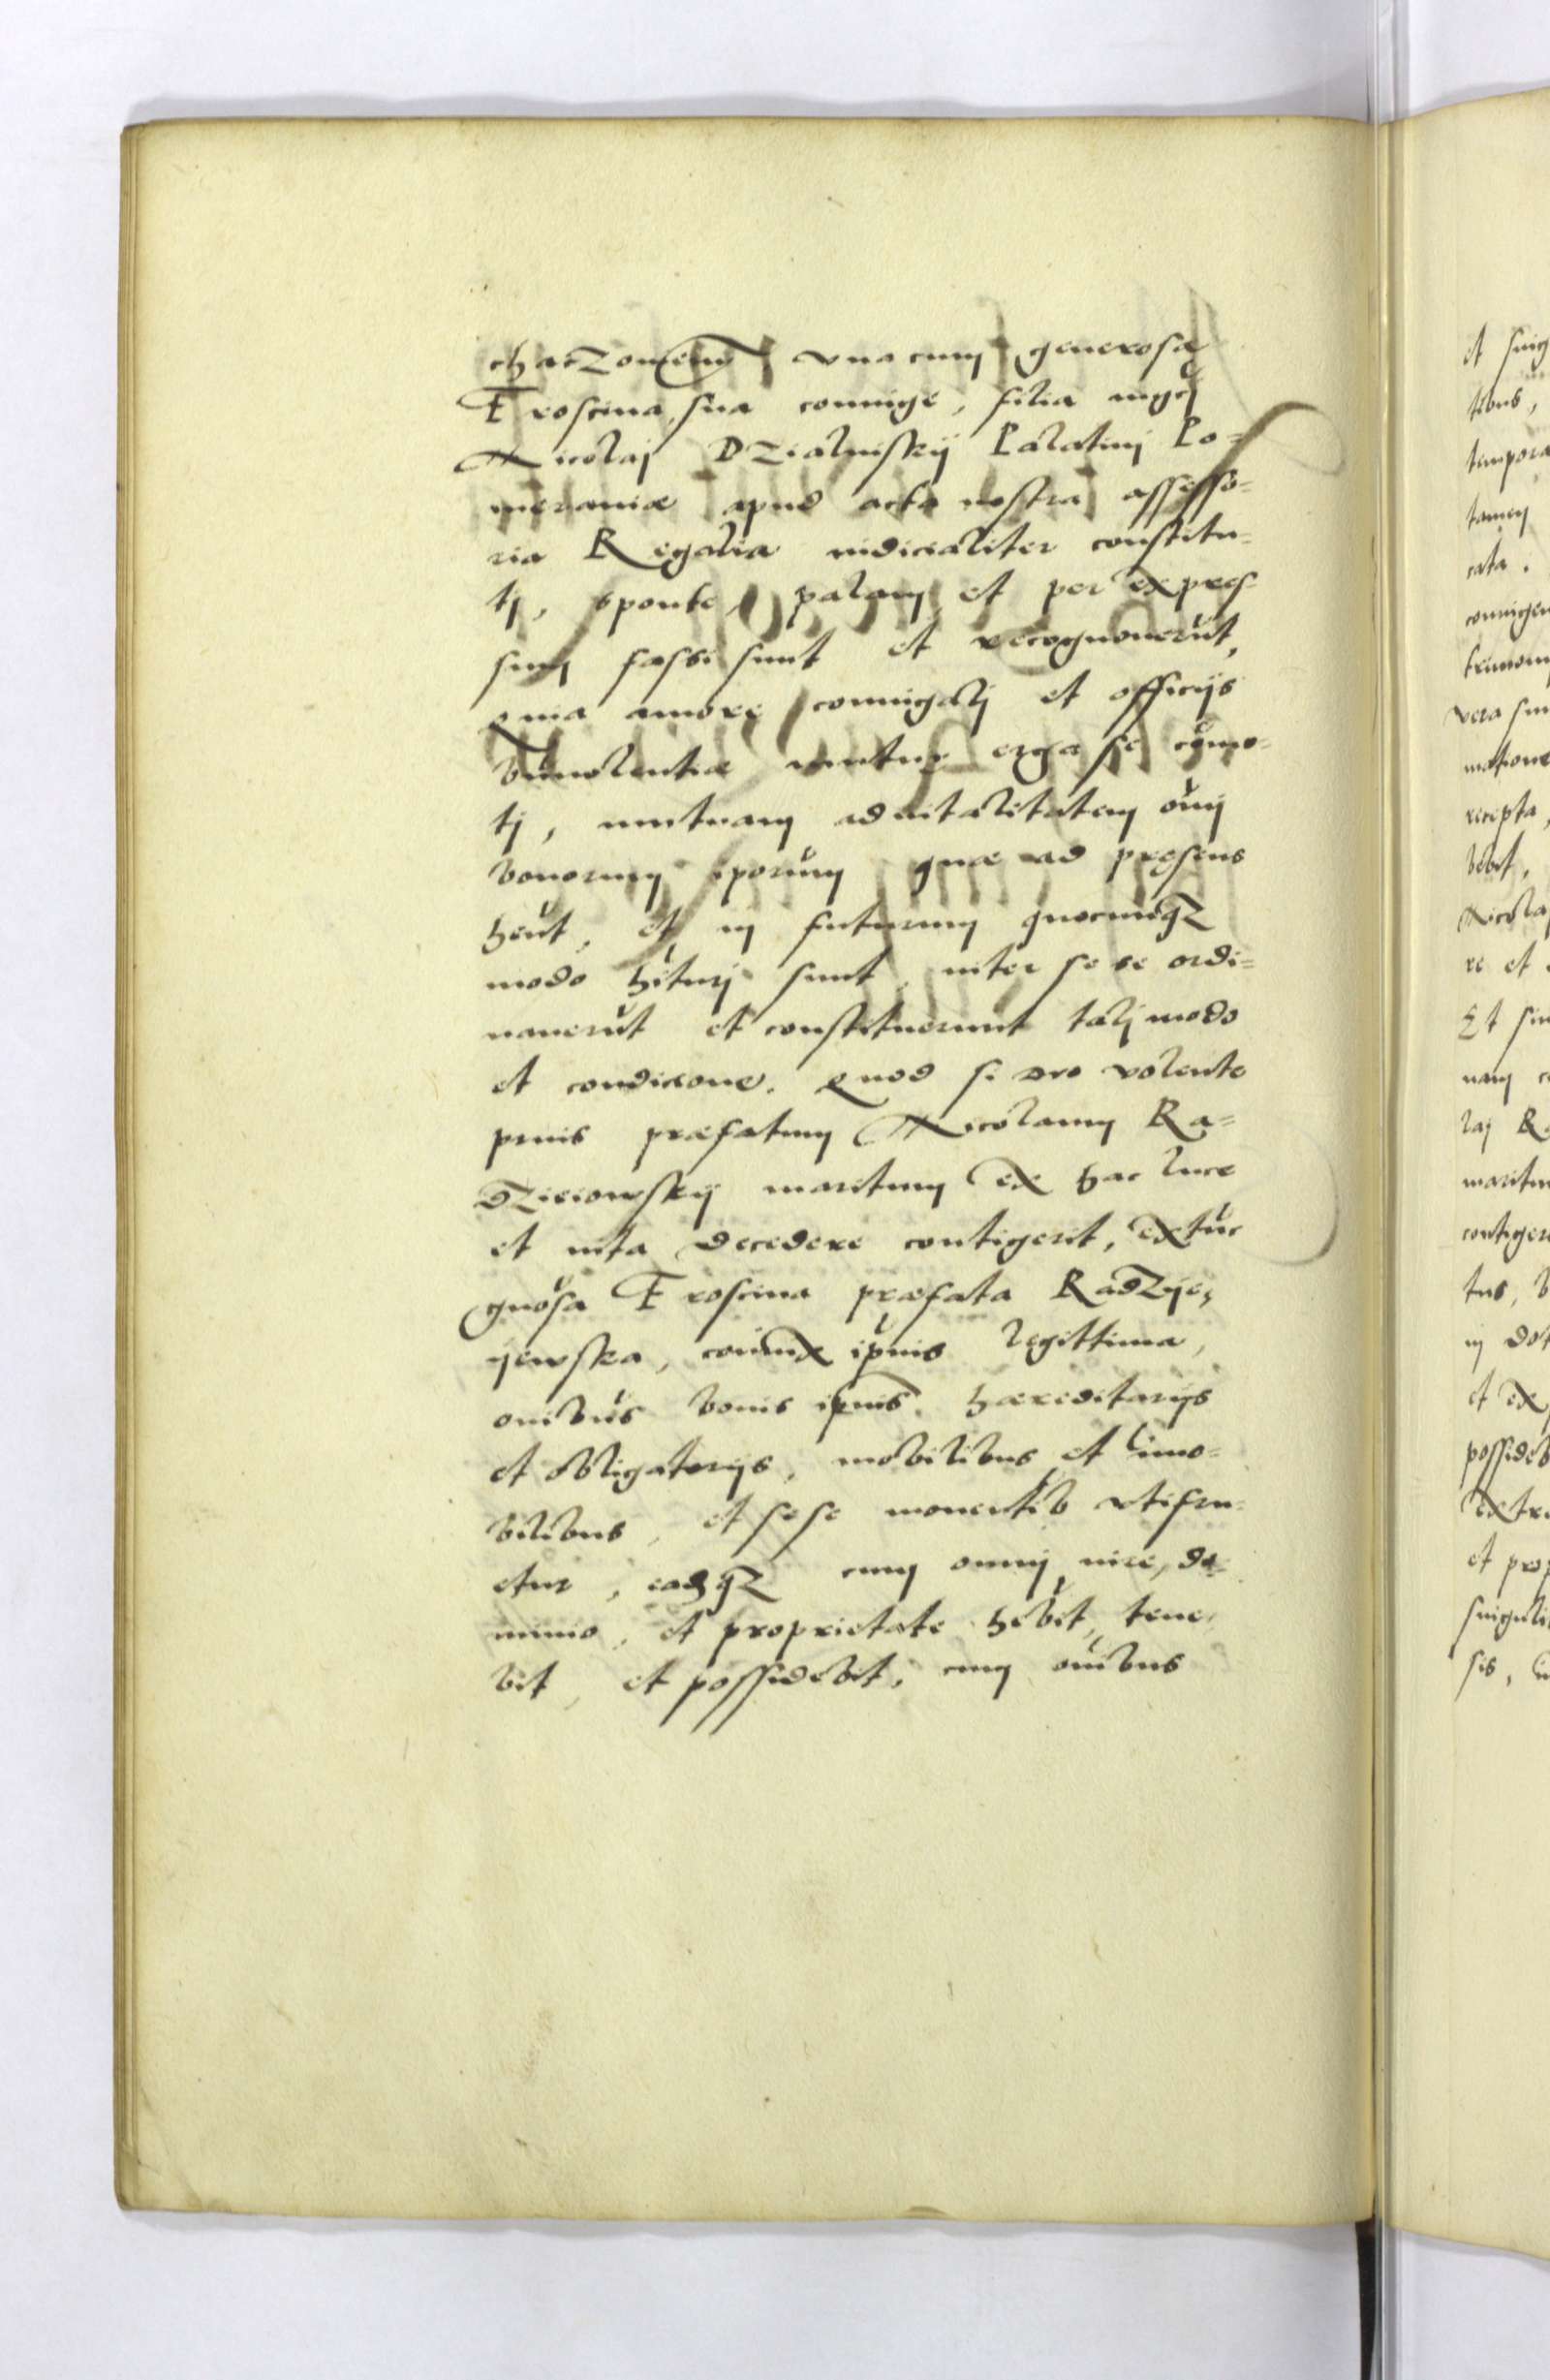 chaczowien̄ vna cum generosa
Froscina, sua coniuge, filia mgcj
Nicolaj Dzialinskij Palatinj Po=
meraniæ apud acta nostra assesso=
ria Regalia iudicialiter constitu=
tj, sponte, palam et per expres-
sum fassi sunt et recognouerūt,
Quia amore coniugalj et officijs
beneuolentiæ mutuę erga se cōmo=
tj, mutuam aduitalitatem oīm
bonorum iporum quæ ad pręsens
hēnt, et in futurum quocunqz
modo hīturj sunt, inter se se ordi=
nauerūt et constituerunt talj modo
et condicione. Quod si Deo volente
prius præfatum Nicolaum Ra=
dzieiowskij maritum ex hac luce
et vita decedere contigerit, extūc
gnosa Froscina præfata Radzye,
jewska, coniūx ipīus legittima,
oīnibus bonis ipīus hæreditarijs
et obligatorijs, mobilibus et immo=
bilibus, et sese mouentib vtifru=
etur, eadqz cum omnj iure, do=
minio, et proprietate hēbit, tene,
bit, et possidebit, cum oīnibus
et sing
tibus,
tempora
tamen
cata.
coniugem
trimon
vera sin
matione
recepta,
bebit,
Nicola
re et
Et sin
nam c
laj Ra
maritu
contiger
tus, b
in dot
et ex
possideb
extra
et prop
singuli
sis,